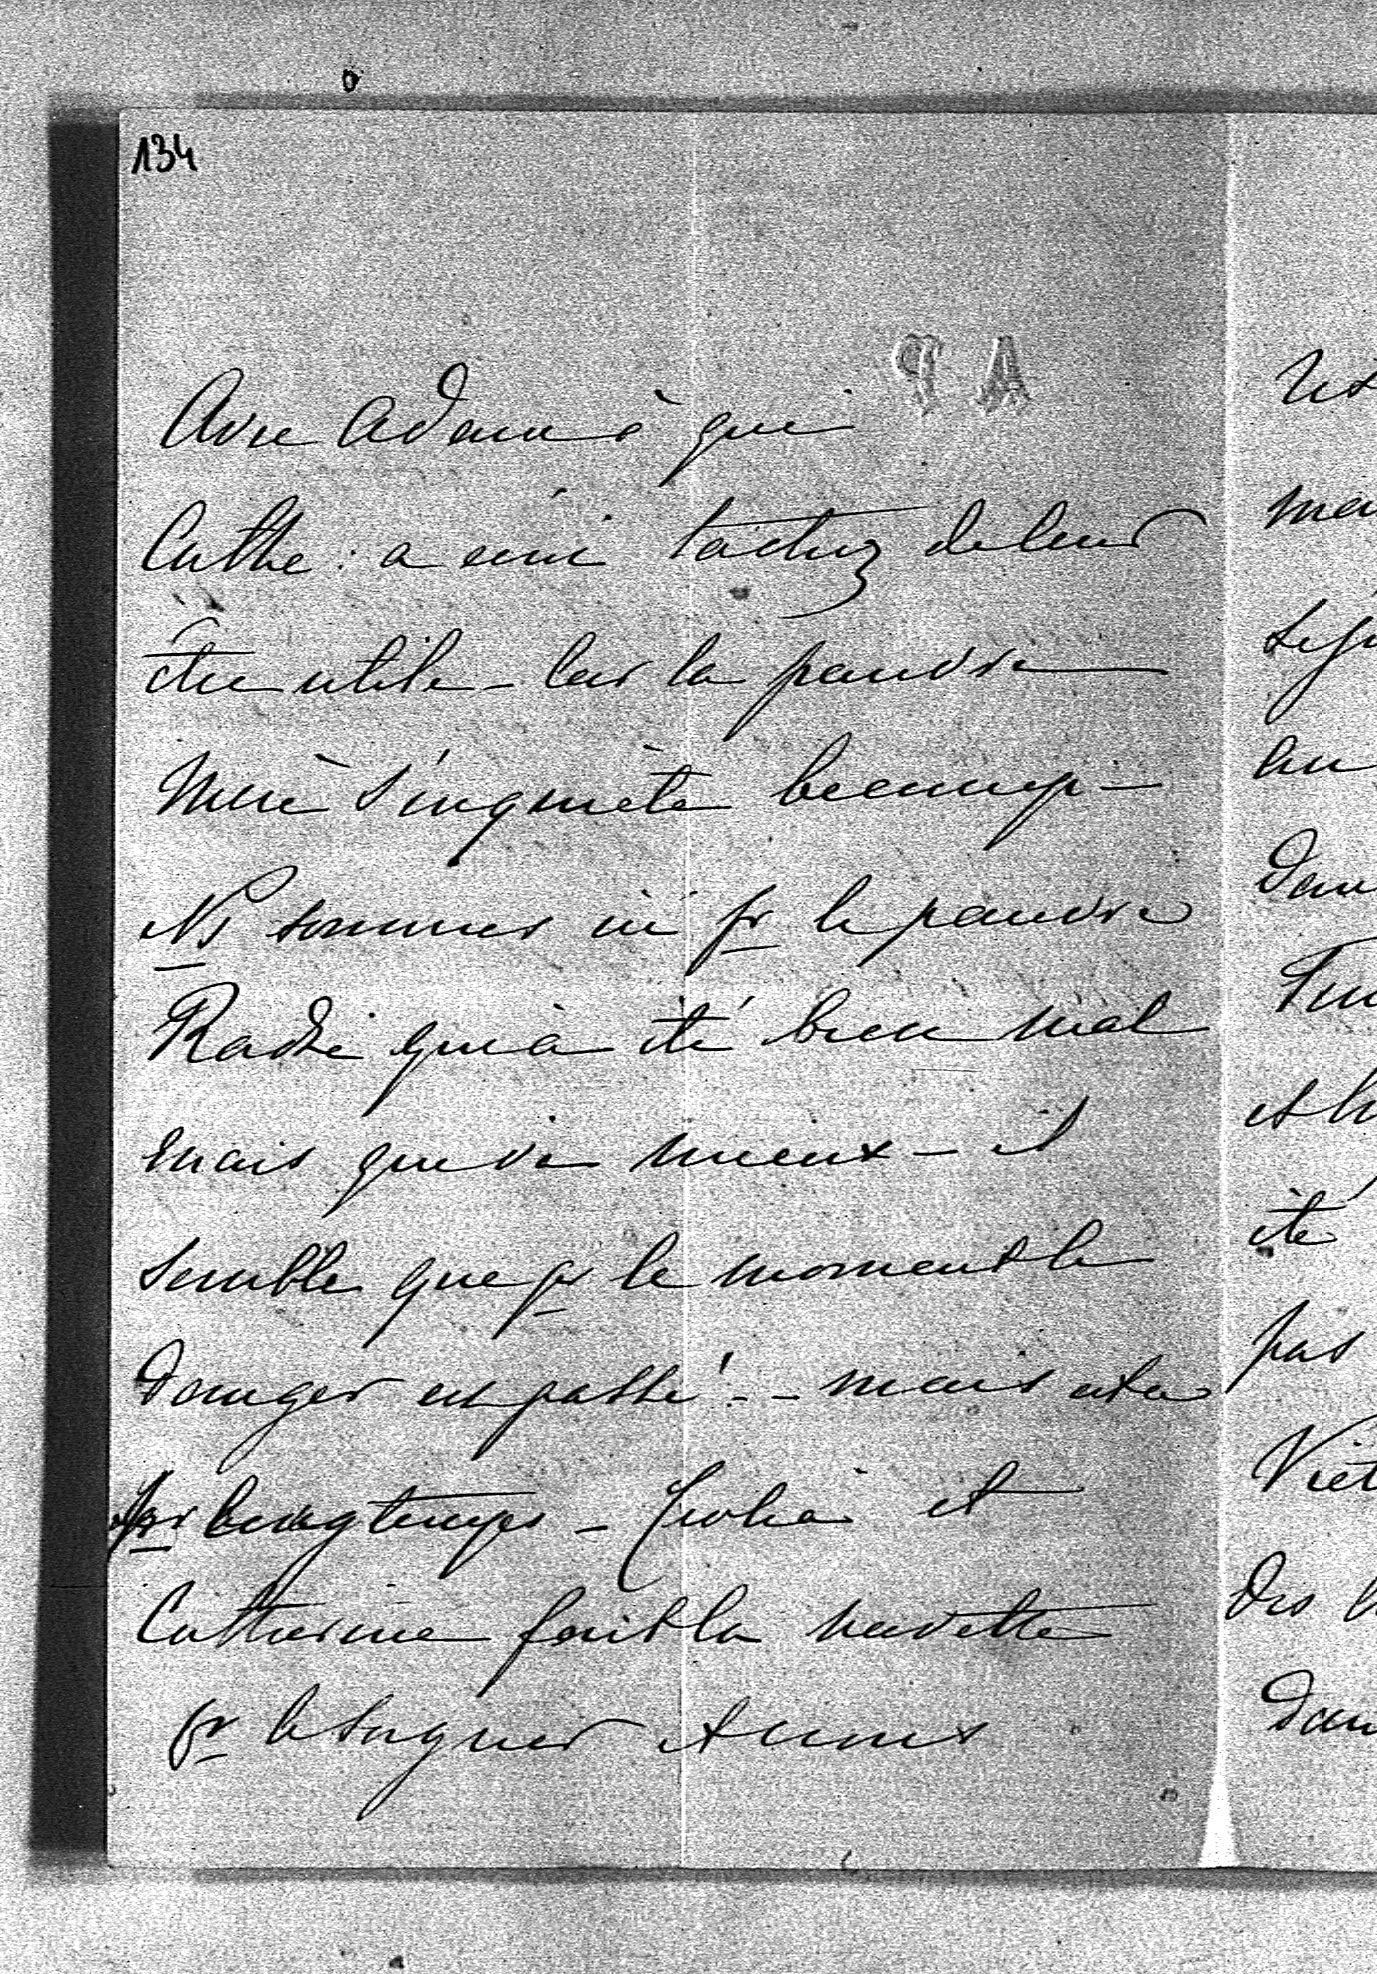 134
A P
Avec Adam à qui
Cathe: a écri tachez de leur
être utile - Car la pauvre
Mère s'inquiète beaucoup -
Ns sommes ici pr le pauvre
qui a été bien mal
mais qui va mieux - il
semble que pr le moment le
danger est passé! - - mais est-ce
pr longtemps - et
Catherine fait la navette
pr le soigner et nous
mai
au
dan
et
été
pas
des
dan